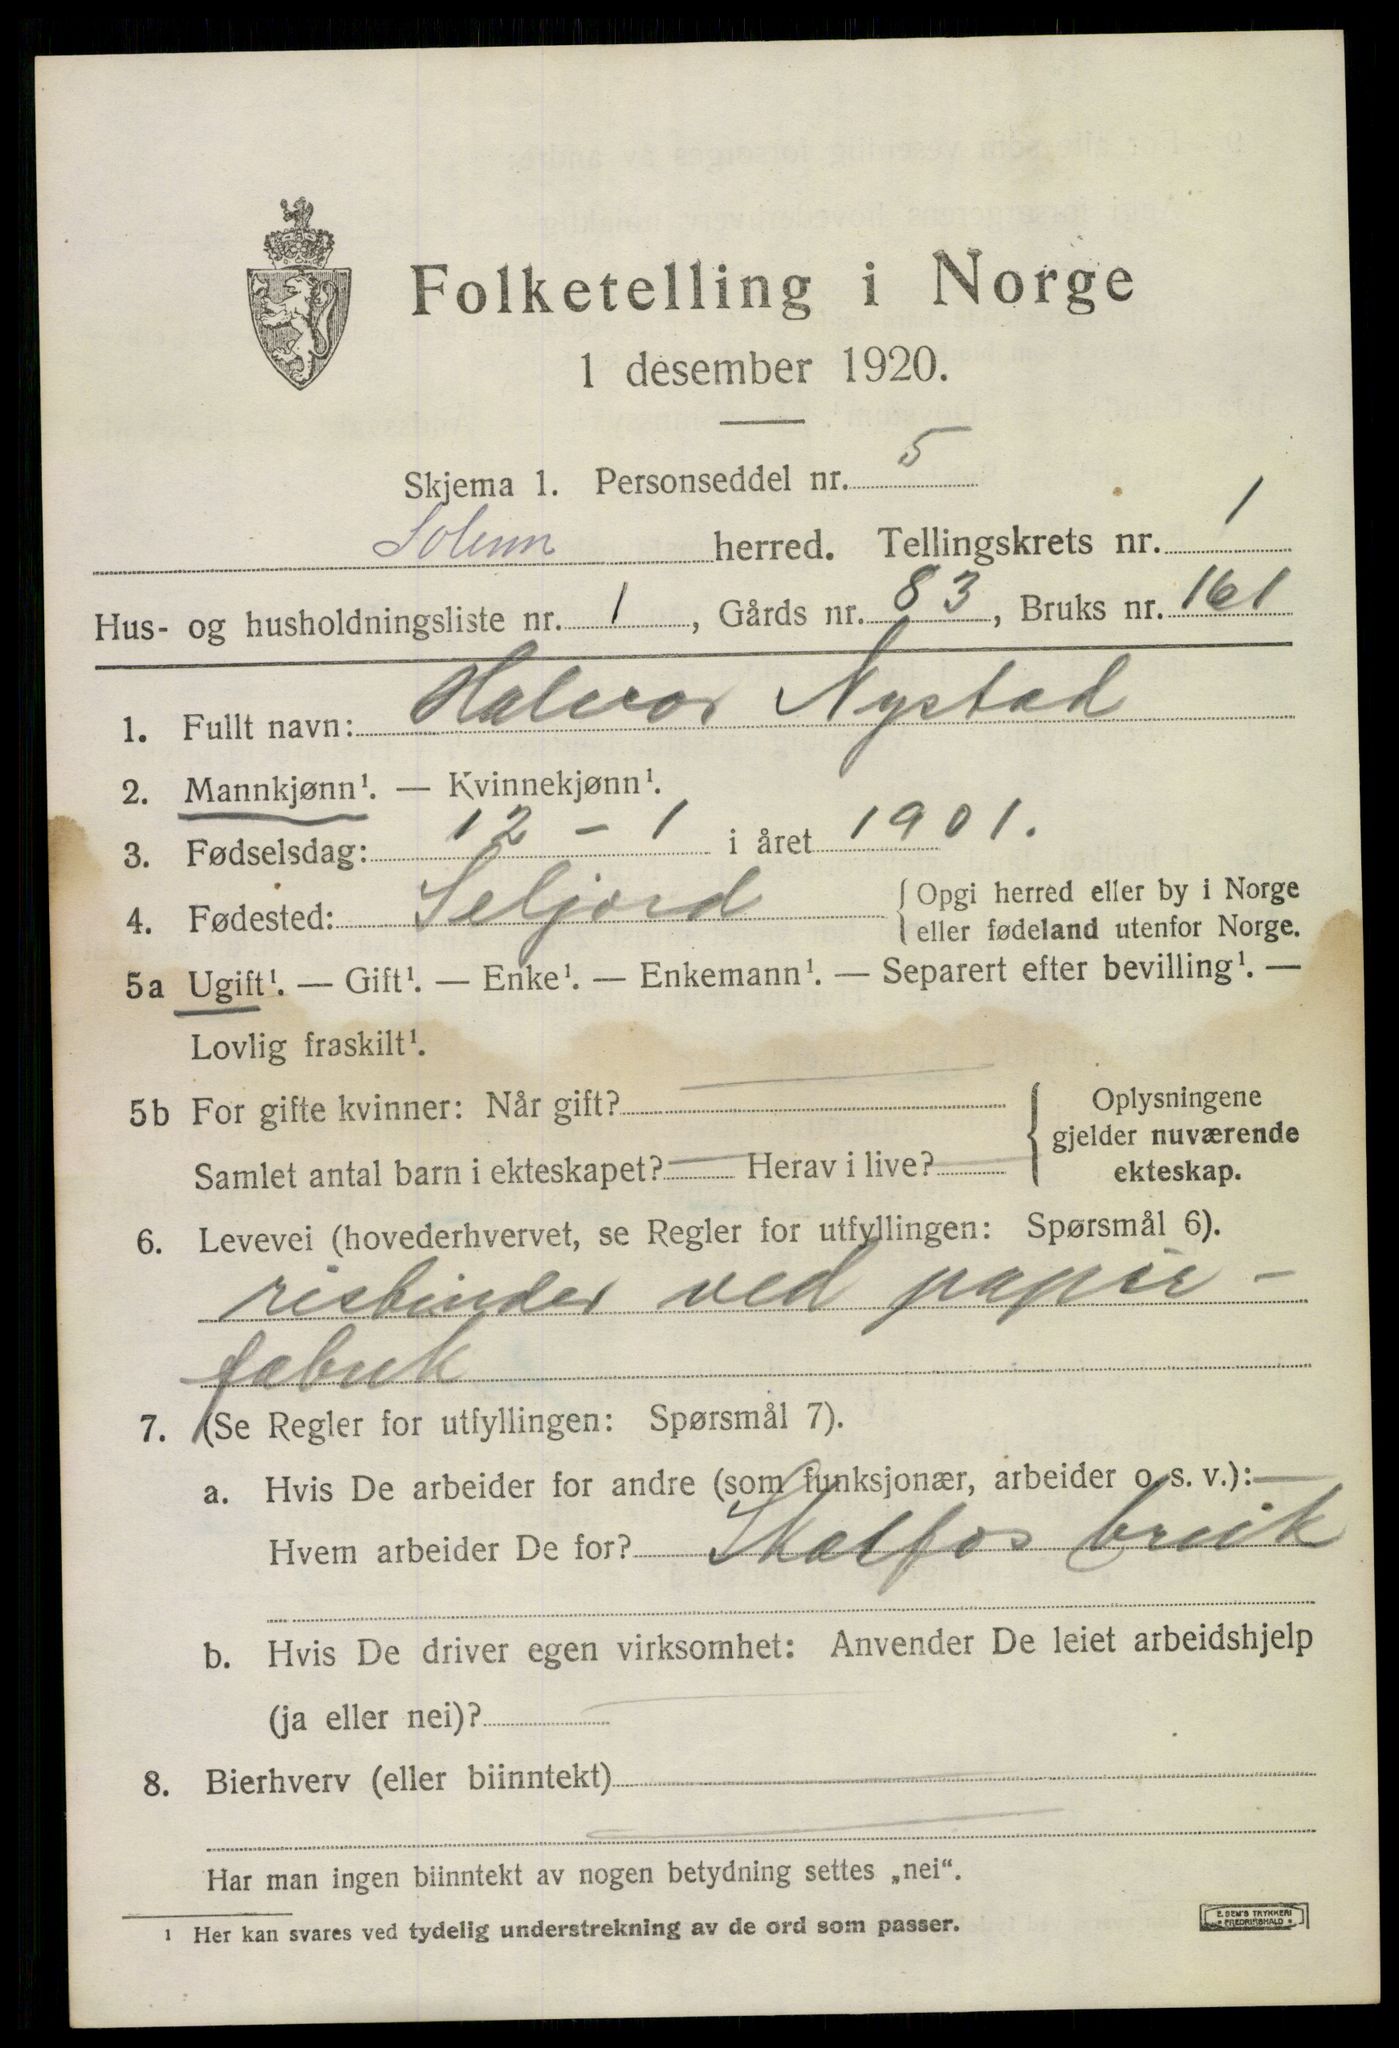 Folketelling i Norge
1 desember 1920.
Skjema 1. Personseddel nr. 5
Solum herred. Tellingskrets nr. 1
Hus- og husholdningsliste nr. 1, Gårds nr. 83, Bruks nr. 161
1. Fullt navn: Halvor Nystad
2. Mannkjønn¹. — Kvinnekjønn¹.
3. Fødselsdag: 12 - 1 i året 1901.
4. Fødested: Seljord { Opgi herred eller by i Norge
eller fødeland utenfor Norge.
5a Ugift¹. — Gift¹. — Enke¹. — Enkemann¹. — Separert efter bevilling¹. —
Lovlig fraskilt¹.
5b For gifte kvinner: Når gift? —
Samlet antal barn i ekteskapet? — Herav i live? —
Oplysningene
gjelder nuværende
ekteskap.
6. Levevei (hovederhvervet, se Regler for utfyllingen: Spørsmål 6).
risbinder ved papir-
fabrik
7. (Se Regler for utfyllingen: Spørsmål 7).
a. Hvis De arbeider for andre (som funksjonær, arbeider o. s. v.): —
Hvem arbeider De for? Skotfos bruk
b. Hvis De driver egen virksomhet: Anvender De leiet arbeidshjelp
(ja eller nei)? —
8. Bierhverv (eller biinntekt) —
Har man ingen biinntekt av nogen betydning settes „nei“.
¹ Her kan svares ved tydelig understrekning av de ord som passer.
E. SEM'S TRYKKERI
FREDRIKSHALD